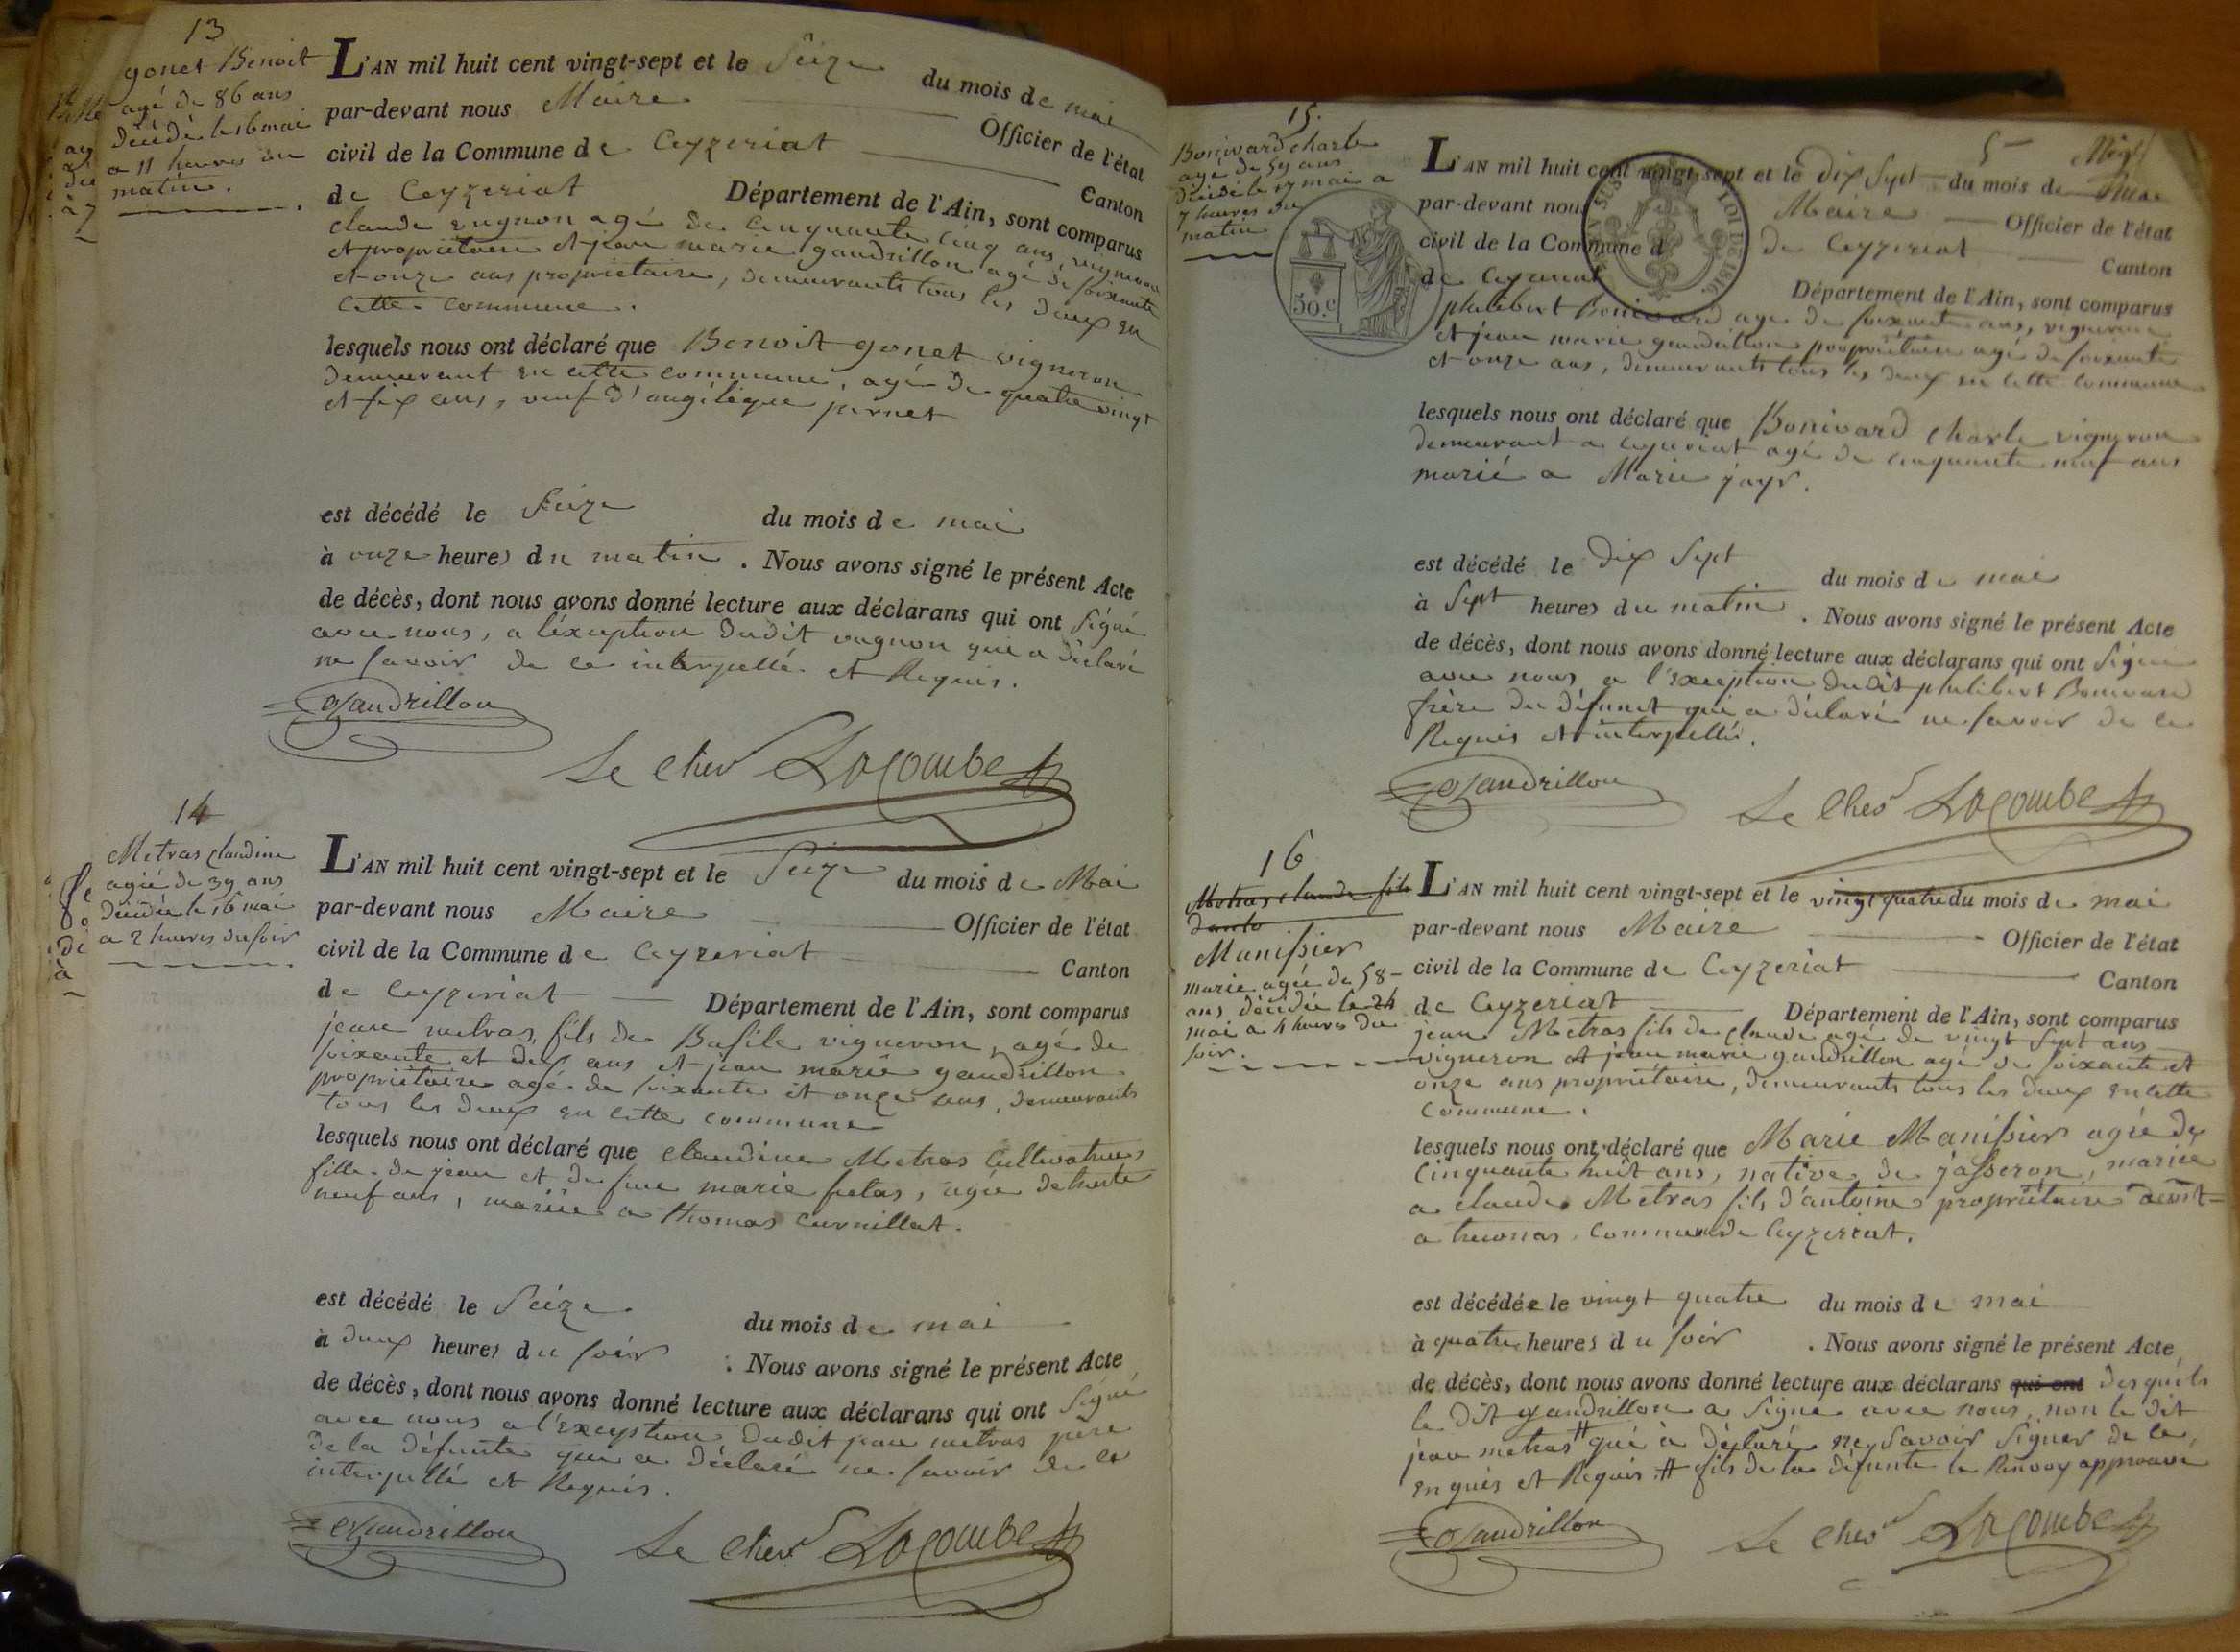 13
gonet Benoit
agé de 86 ans
décédé le 16 mai
a 11 heures du
matin.
L'AN mil huit cent vingt-sept et le Seize du mois de mai
par-devant nous Maire Officier de l'état
civil de la Commune de Ceyzeriat Canton
de Ceyzeriat Département de l'Ain, sont comparus
claude vugnon agé de Cinquante cinq ans, vigneron
et propriétaire et jean marie gandrillon agé de soixante
et onze ans propriétaire, demeurants tous les deux en
cette commune.
lesquels nous ont déclaré que Benoit gonet vigneron
demeurant en cette commune, agé de quatre vingt
et six ans, veuf d'angélique
est décédé le Seize du mois de mai
à onze heures du matin. Nous avons signé le présent Acte
de décès, dont nous avons donné lecture aux déclarans qui ont signé
avec nous, a l'éxception dudit vugnon qui a déclaré
ne savoir de ce interpellé et Requis.
Gandrillon
Le Cher Lacombe
14
Metras claudine
agée de 39 ans
décédée le 16 mai
a 2 heures du soir
L'AN mil huit cent vingt-sept et le Seize du mois de Mai
par-devant nous Maire Officier de l'état
civil de la Commune de Ceyzeriat Canton
de Ceyzeriat Département de l'Ain, sont comparus
jean metras, fils de Basile vigneron, agé de
soixante et dix ans et jean marie gandrillon
propriétaire agé de soixante et onze ans, demeurants
tous les deux en cette commune
lesquels nous ont déclaré que claudine Metras Cultivatrice
fille de jean et de feue marie agée de trente
neuf ans, mariée a thomas Curnillat.
est décédé le Seize du mois de mai
à deux heures du soir. Nous avons signé le présent Acte
de décès, dont nous avons donné lecture aux déclarans qui ont signé
avec nous a l'Exception dudit jean metras père
de la défunte qui a déclaré ne savoir de ce
interpellé et Requis.
Gandrillon
Le Cher Lacombe
15.
Bonivard charle
agé de 59 ans
décédé le 17 mai a
7 heures du
matin
5
L'AN mil huit cent vingt-sept et le dix Sept du mois de Mai
par-devant nous Maire Officier de l'état
civil de la Commune de Ceyzeriat Canton
de Ceyzeriat Département de l'Ain, sont comparus
LOI DE 1816.
50.c
philibert Bonivard agé de soixante ans, vigneron
et jean marie gandrillon propriétaire agé de soixante
et onze ans, demeurants tous les deux en cette commune
lesquels nous ont déclaré que Bonivard Charle vigneron
demeurant a ceyzeriat agé de cinquante neuf ans
marié a Marie jayr.
est décédé le Dix Sept du mois de mai
à Sept heures du matin. Nous avons signé le présent Acte
de décès, dont nous avons donné lecture aux déclarans qui ont signé
avec nous a l'exception dudit philibert Bonivard
frère du défunt qui a déclaré ne savoir de ce
Requis et interpellé.
Gandrillon
Le Cher Lacombe
16
Metras claude fils
d'anto
Manissier
marie agée de 58
ans décédée le 24
mai a 4 heures du
soir.
L'AN mil huit cent vingt-sept et le vingt quatre du mois de mai
par-devant nous Maire Officier de l'état
civil de la Commune de Ceyzeriat Canton
de Ceyzeriat Département de l'Ain, sont comparus
jean Metras fils de claude agé de vingt sept ans
vigneron et jean marie gandrillon agé de soixante et
onze ans propriétaire, demeurants tous les deux en cette
commune.
lesquels nous ont déclaré que Marie Manissier agée de
Cinquante huit ans, native de jasseron, mariée
a claude Metras fils d'antoine propriétaire demt
a treconas, Commune de Ceyzeriat.
est décédée le vingt quatre du mois de mai
à quatre heures du soir. Nous avons signé le présent Acte
de décès, dont nous avons donné lecture aux déclarans qui ont desquels
le dit gandrillon a signé avec nous, non le dit
jean metras # qui a déclaré ne savoir signer de ce
enquis et Requis. # fils de la défunte le Renvoy approuvé
Gandrillon
Le Cher Lacombe